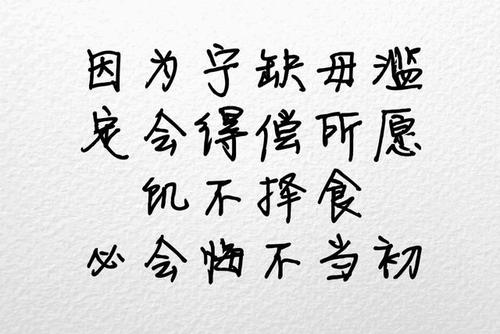 因为宁缺毋滥
定会得偿所愿
饥不择食
必会悔不当初